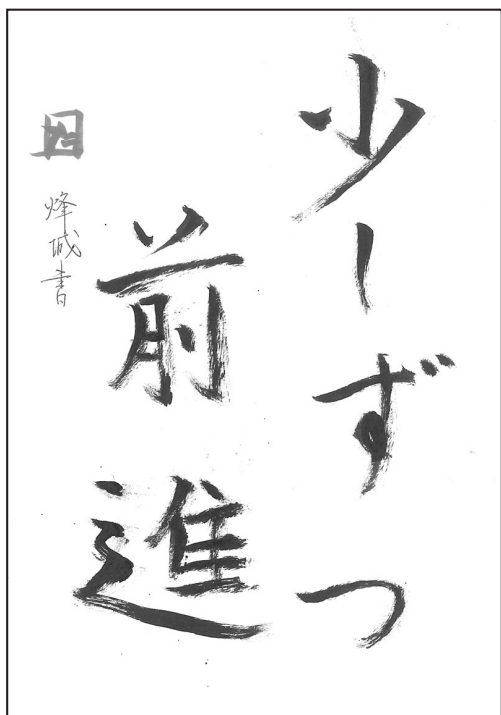 少しずつ
前進
烽城書